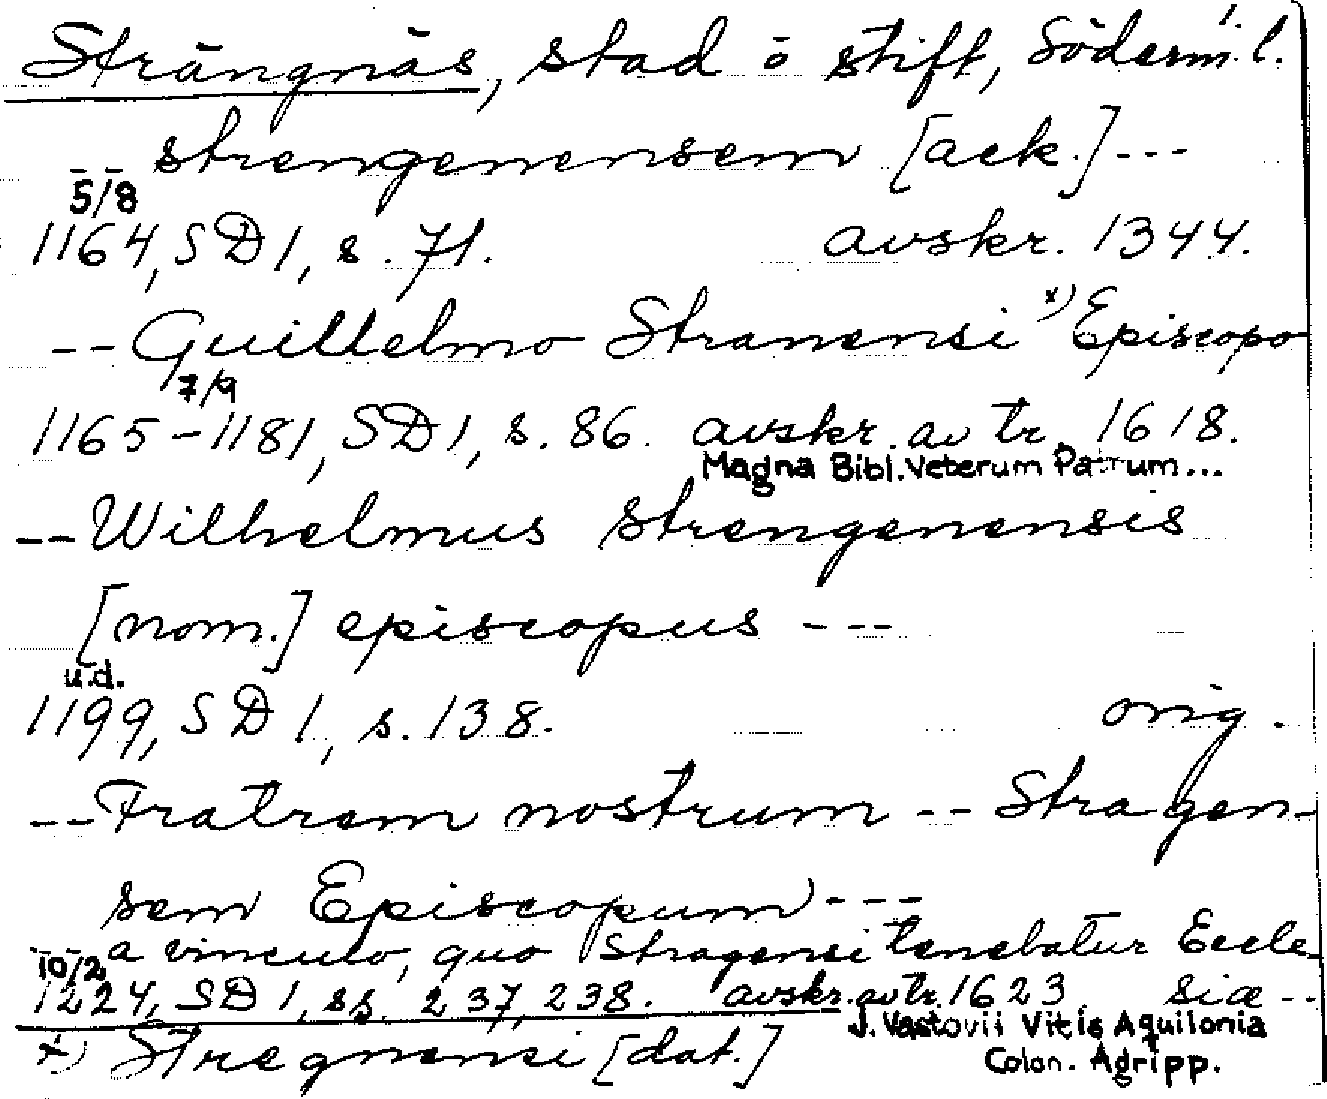 Strängnäs, stad o stift, Söderm. l.
strengenensem [ack.] ---
5/8
1164, SD 1, s. 71. avskr. 1344.
-- Guillelmo Stranensi x) Episcopo
7/9
1165-1181, SD 1, s. 86. avskr. av tr. 1618.
Magna Bibl. Veterum Patrum...
-- Wilhelmus strengenensis
[nom.] episcopus ---
u.d.
1199, SD 1, s. 138. orig.
-- Fratrem nostrum -- Stragen-
sem Episcopum ---
-- a vinculo, quo Stragensi tenebatur Eccle-
10/2
1224, SD 1, ss. 237, 238. avskr. av tr. 1623. siæ --
J. Vastovii Vitis Aquilonia
x) Stregnensi [dat.]
Colon. Agripp.